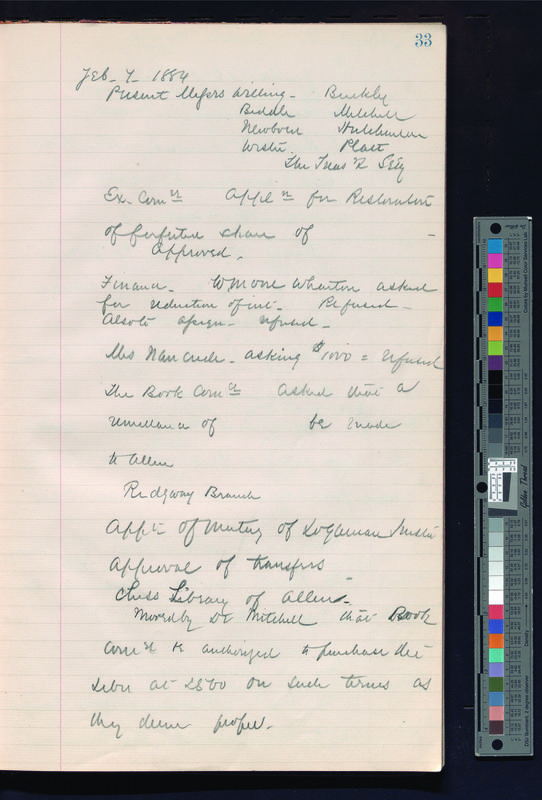 33
Feb. 7 1884
Present Messrs Willing - Buckley
Biddle Mitchell
Newbold Hutchinson
Wister Platt
The Treas & Secy
Ex. Comee Applen for Restoration
of forfeited share of -
Approved.
Finance. Wharton asked
for reduction of int. - Refused -
Also to refused -
Mrs asking $1000 = refused
The Book Comee asked that a
remittance of be made
to Allen
Ridgway Branch
of
Approval of transfers
Chess Library of Allen -
Moved by Dr Mitchell that Book
Come be authorized to purchase the
at on such terms as
they deem proper.